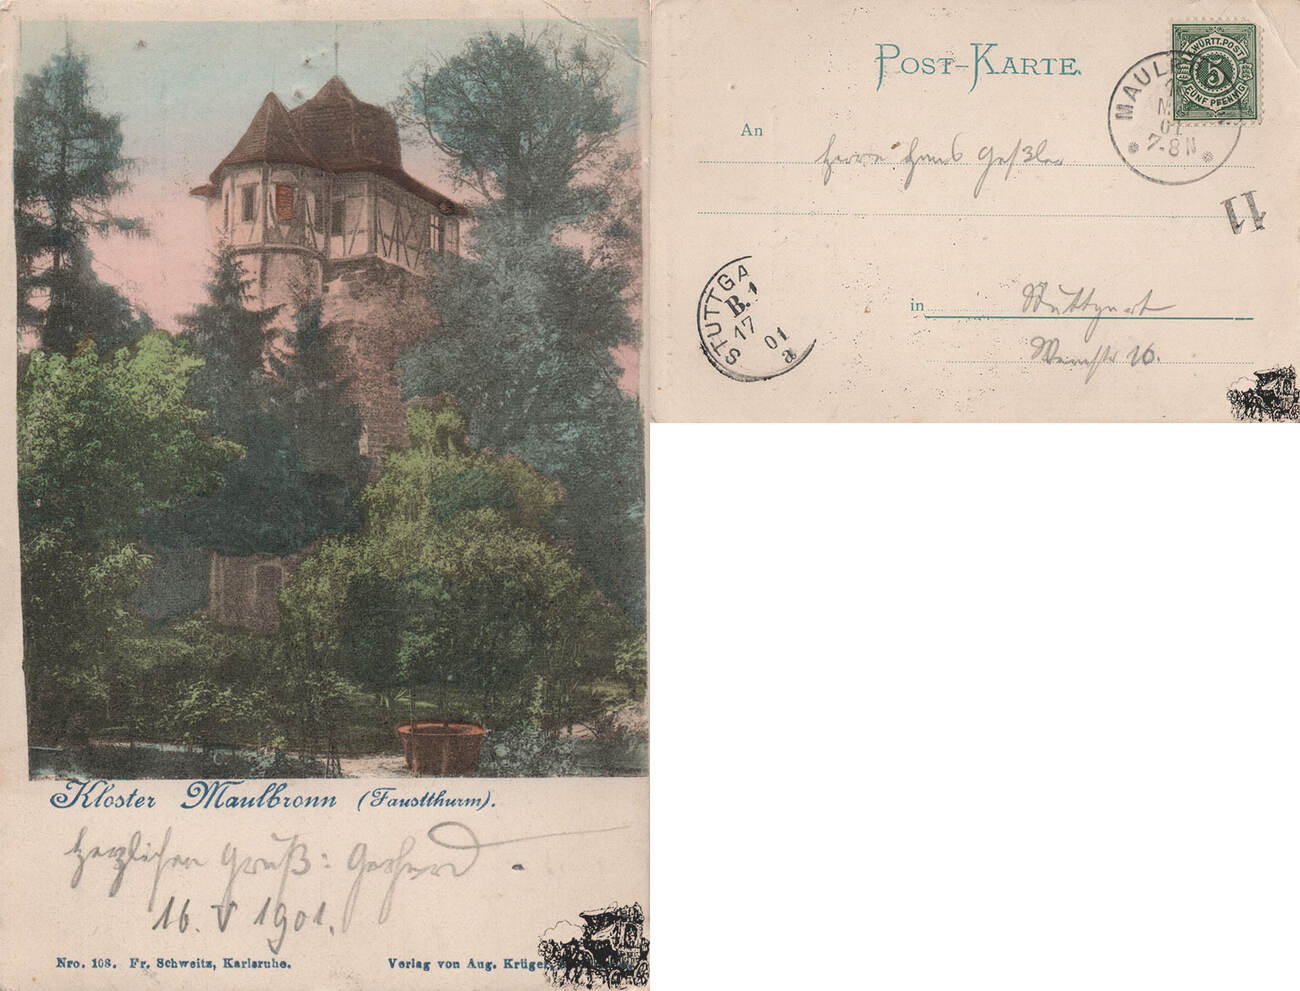 Kloster Maulbronn (Faustthurm).
Herzlichen Gruß: Gerhard
16. V 1901.
Nro. 108. Fr. Schweitz, Karlsruhe.
Verlag von Aug. Krüger
POST-KARTE.
WÜRTT. POST
5
FÜNF PFENNIG
MAULB
01
7-8 N
An
Herrn Hans Geßler
11
STUTTGA
B. 1
17
01
a
in Stuttgart
16.